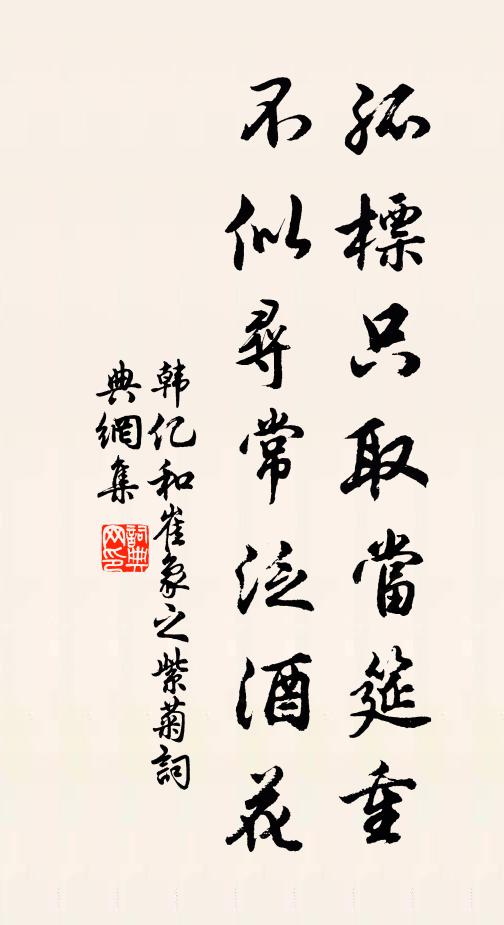 孤標只取當筵重
不似尋常泛酒花
韩亿和崔象之紫菊詞
典網集
詞典
网印